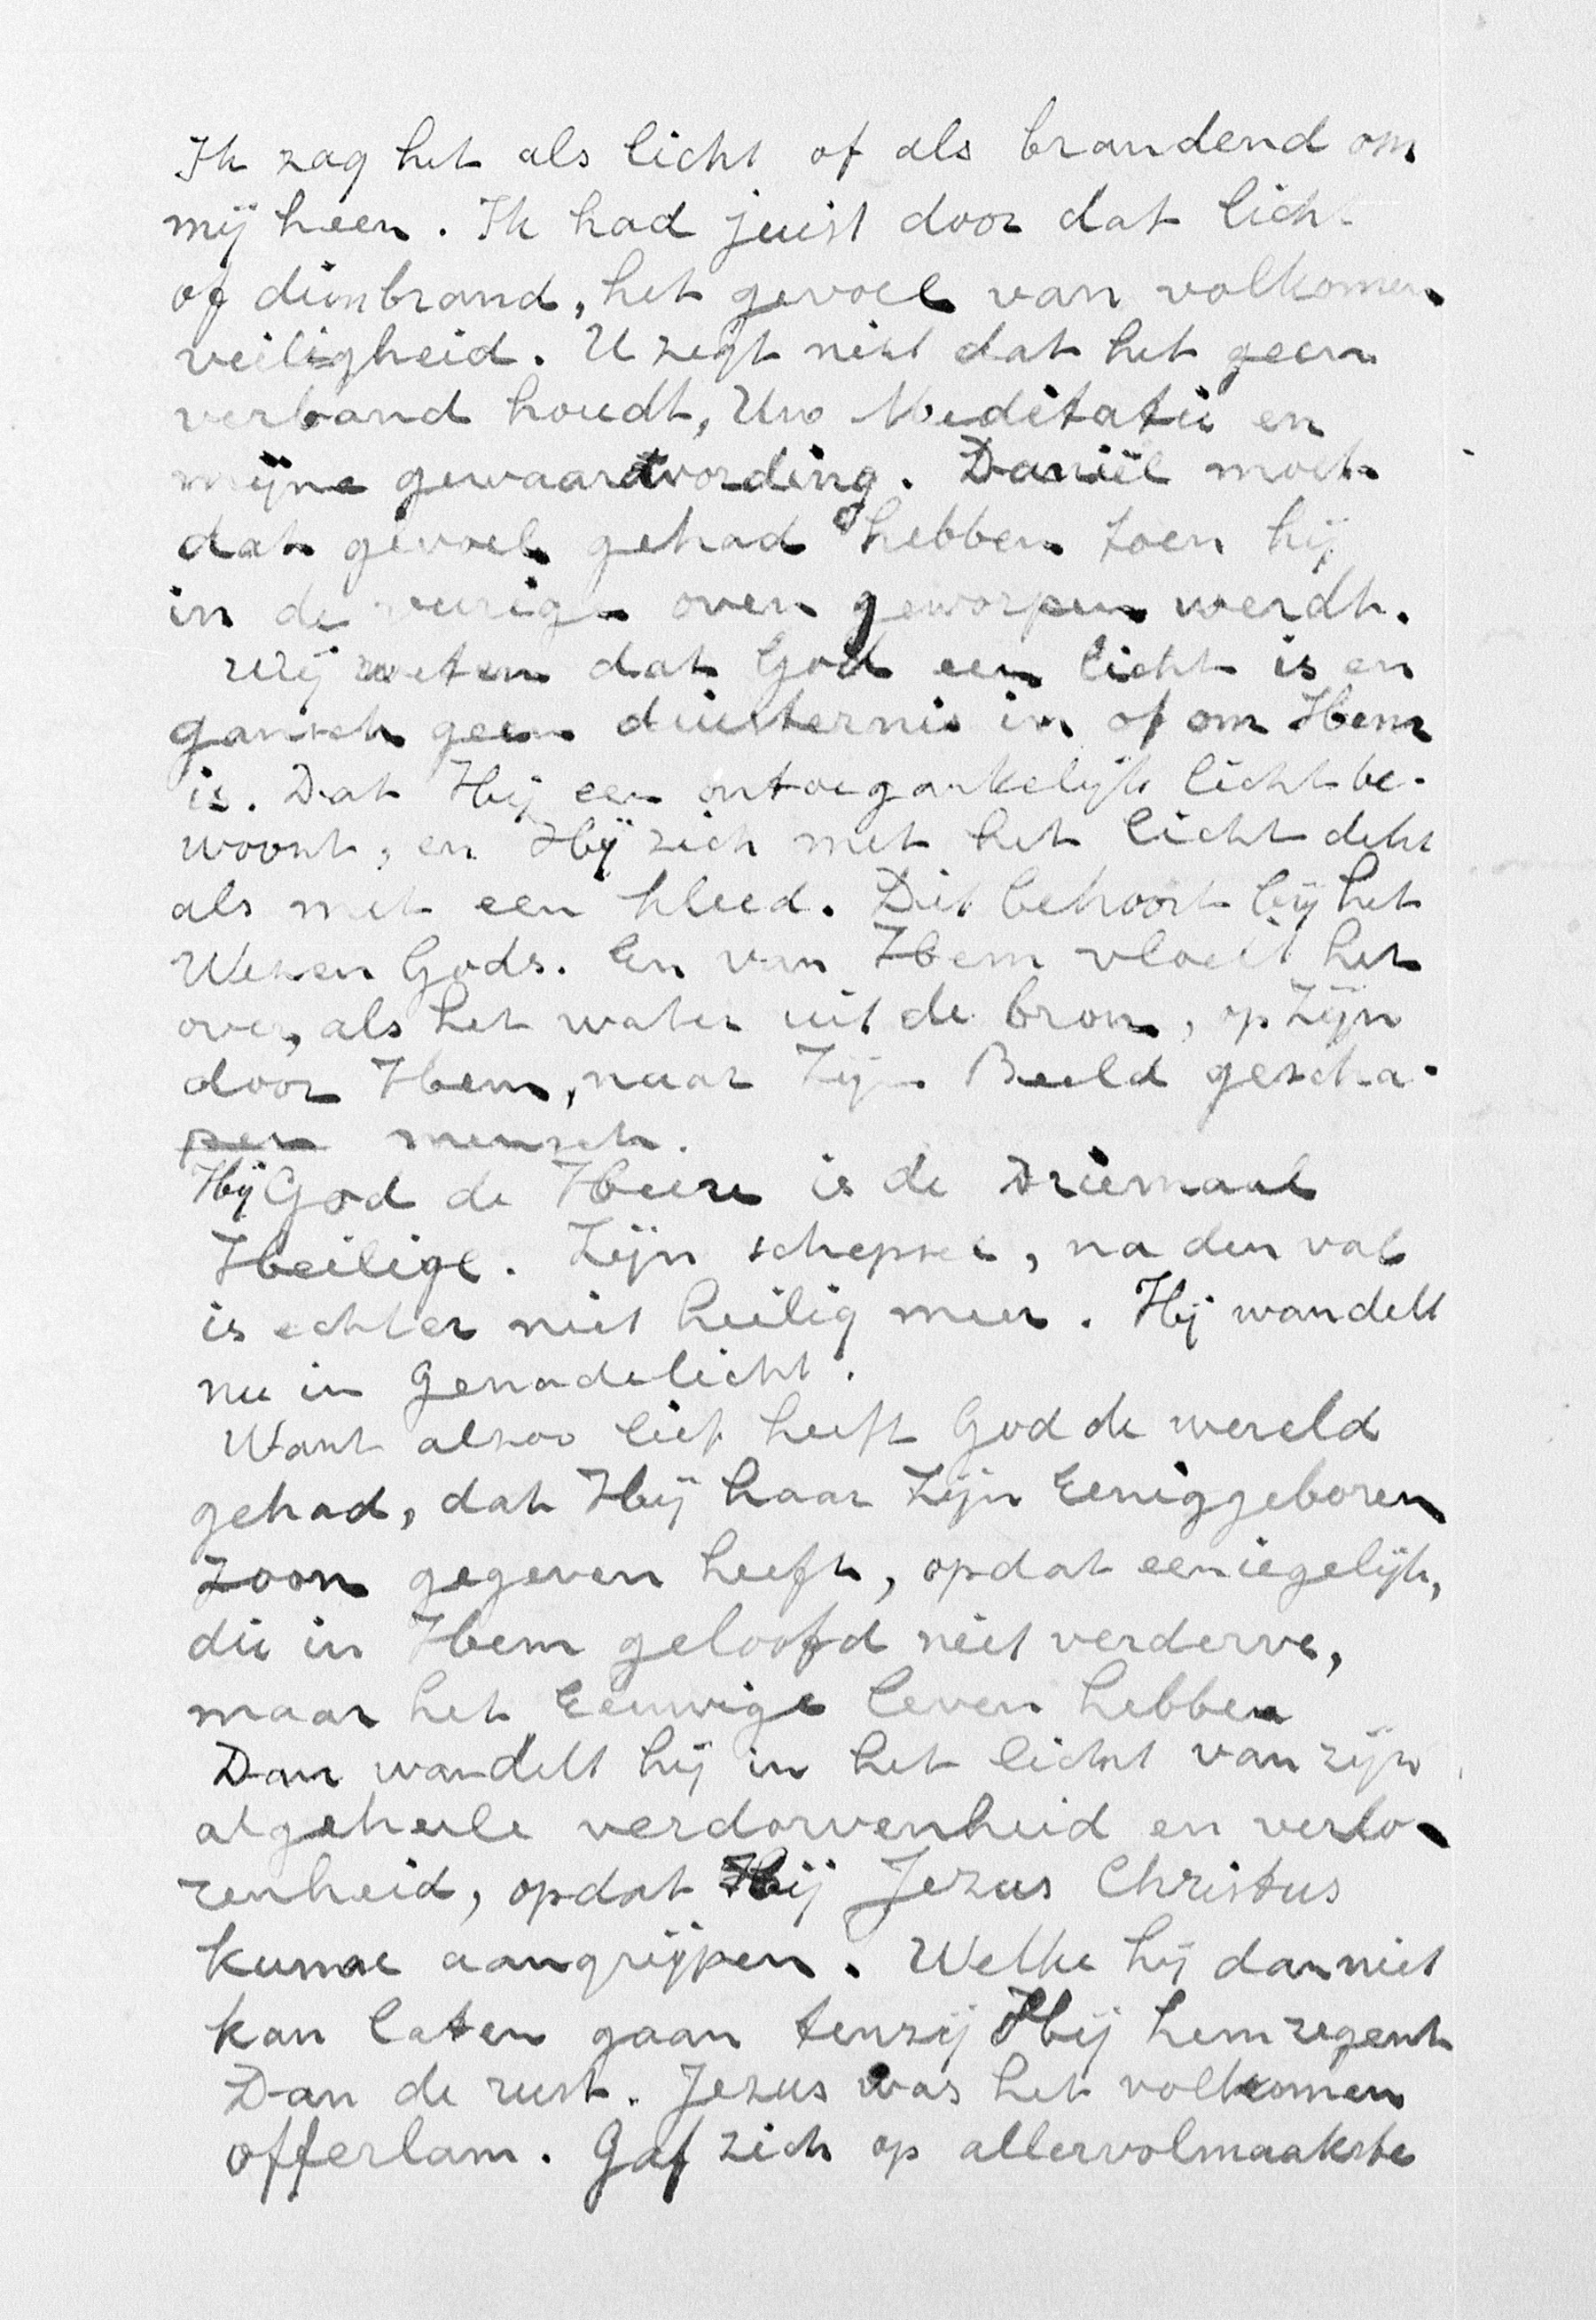 Ik zag het als licht of als brandend om
mij heen. Ik had juist door dat licht
of duinbrand, het gevoel van volkomen
veiligheid. U zegt niet dat het geen
verband houdt, Uw Meditatie en
mijne gewaardwording. Daniël moet
dat gevoel gehad hebben toen hij
in de vurige oven geworpen werdt.
Wij weten dat God een licht is en
gansch geen duisternis in of om Hem
is. Dat Hij een ontoegankelijk licht be-
woont, en Hij zich met het licht dekt
als met een kleed. Dit behoort bij het
Wezen Gods. En van Hem vloeit het
over, als het water uit de bron, op Zijn
door Hem, naar Zijn Beeld gescha-
pen mensch.
Hij God de Heere is de Driemaal
Heilige. Zijn schepsel, na den val
is echter niet heilig meer. Hij wandelt
nu in Genadelicht.
Want alzoo lief heeft God de wereld
gehad, dat Hij haar Zijn Eeniggeboren
Zoon gegeven heeft, opdat een iegelijk,
die in Hem geloofd niet verderve,
maar het Eeuwige leven hebben
Dan wandelt hij in het licht van zijn
algeheele verdorvenheid en verlo-
renheid, opdat Hij Jezus Christus
kunne aangrijpen. Welke hij dan niet
kan laten gaan tenzij Hij hem zegent
Dan de rust. Jezus was het volkomen
offerlam. Gaf zich op allervolmaakste